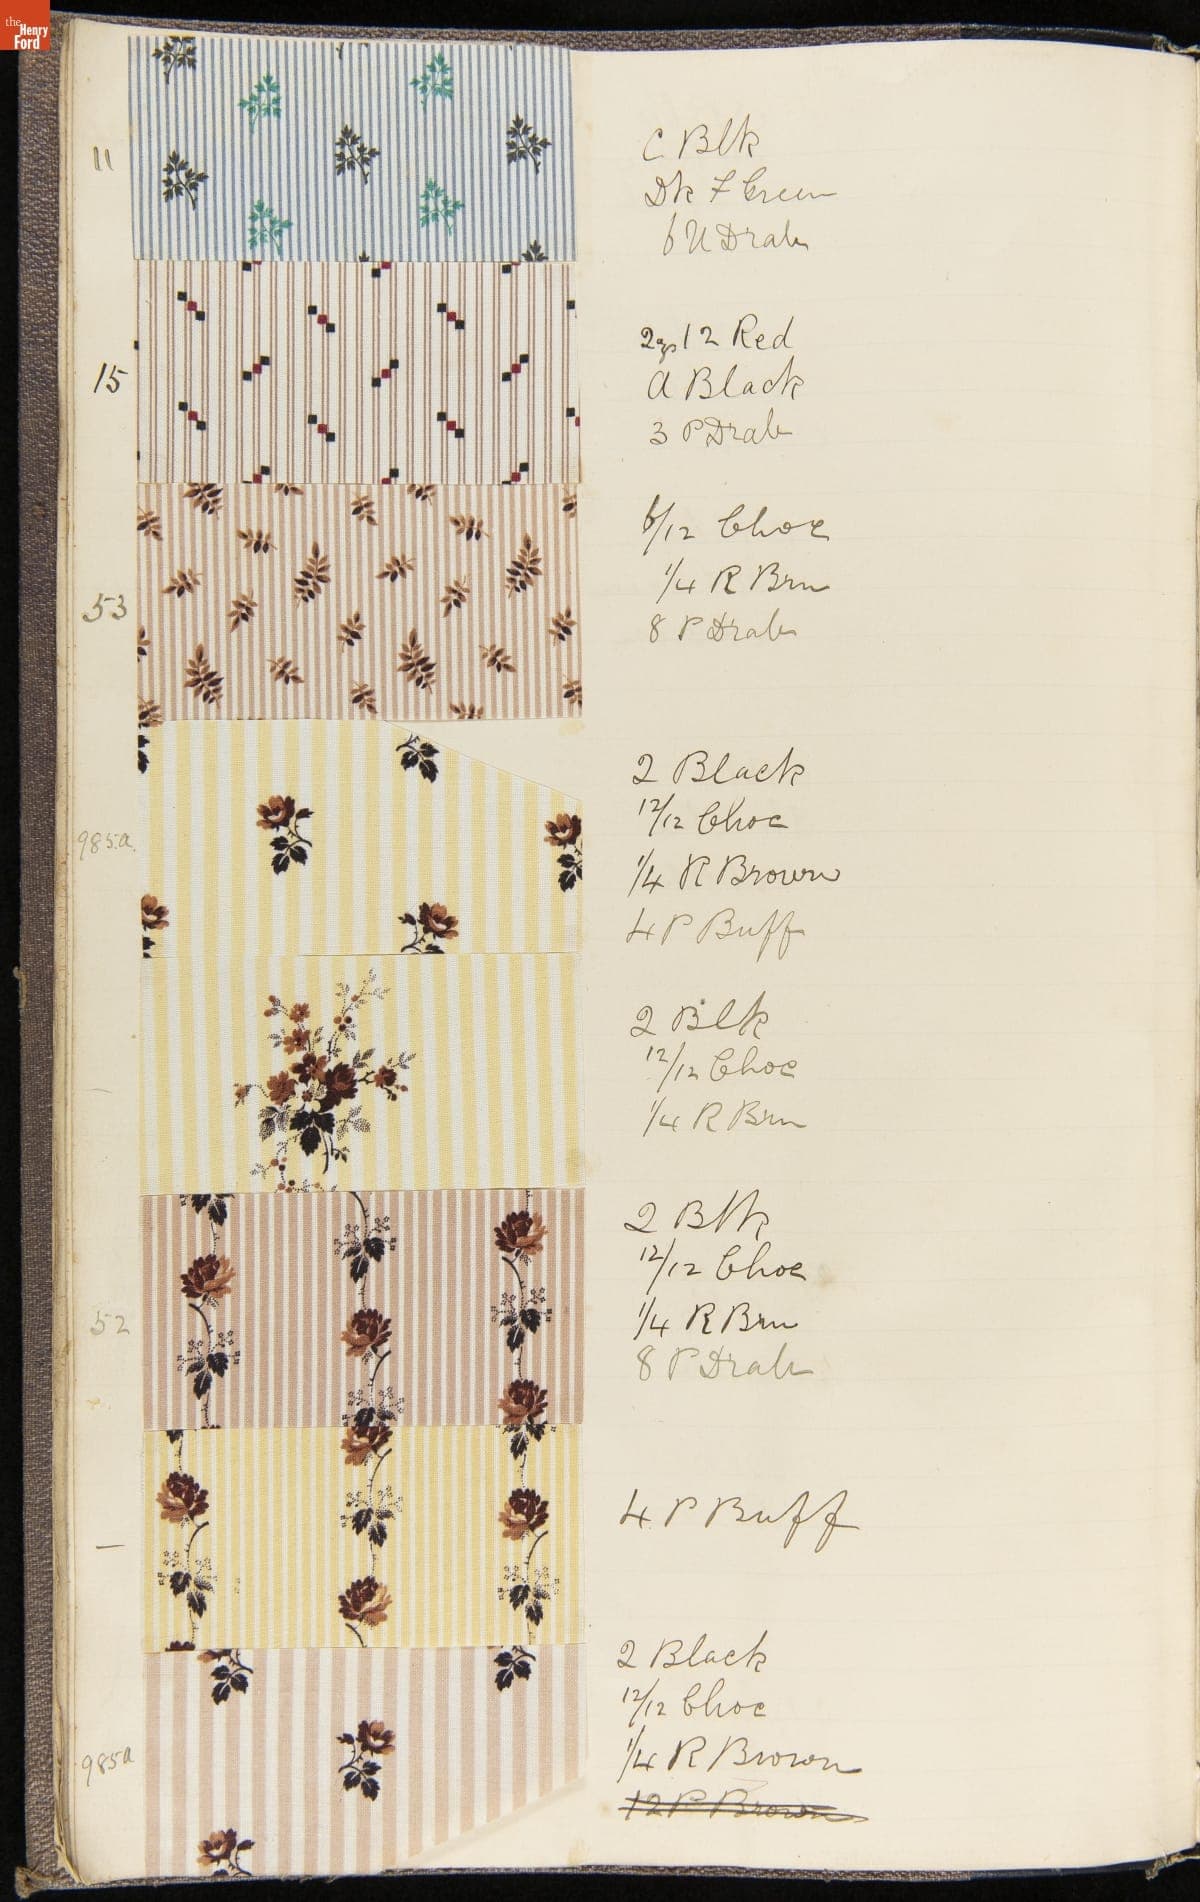 the
Henry
Ford
11
C Blk
Dk F Green
6 U Drab
15
2gs 12 Red
A Black
3 P Drab
53
6/12 Choc
1/4 R Brn
8 P Drab
985a.
2 Black
12/12 Choc
1/4 R Brown
4 P Buff
2 Blk
12/12 Choc
1/4 R Brn
52
2 Blk
12/12 Choc
1/4 R Brn
8 P Drab
4 P Buff
985a
2 Black
12/12 Choc
1/4 R Brown
12 P Brown